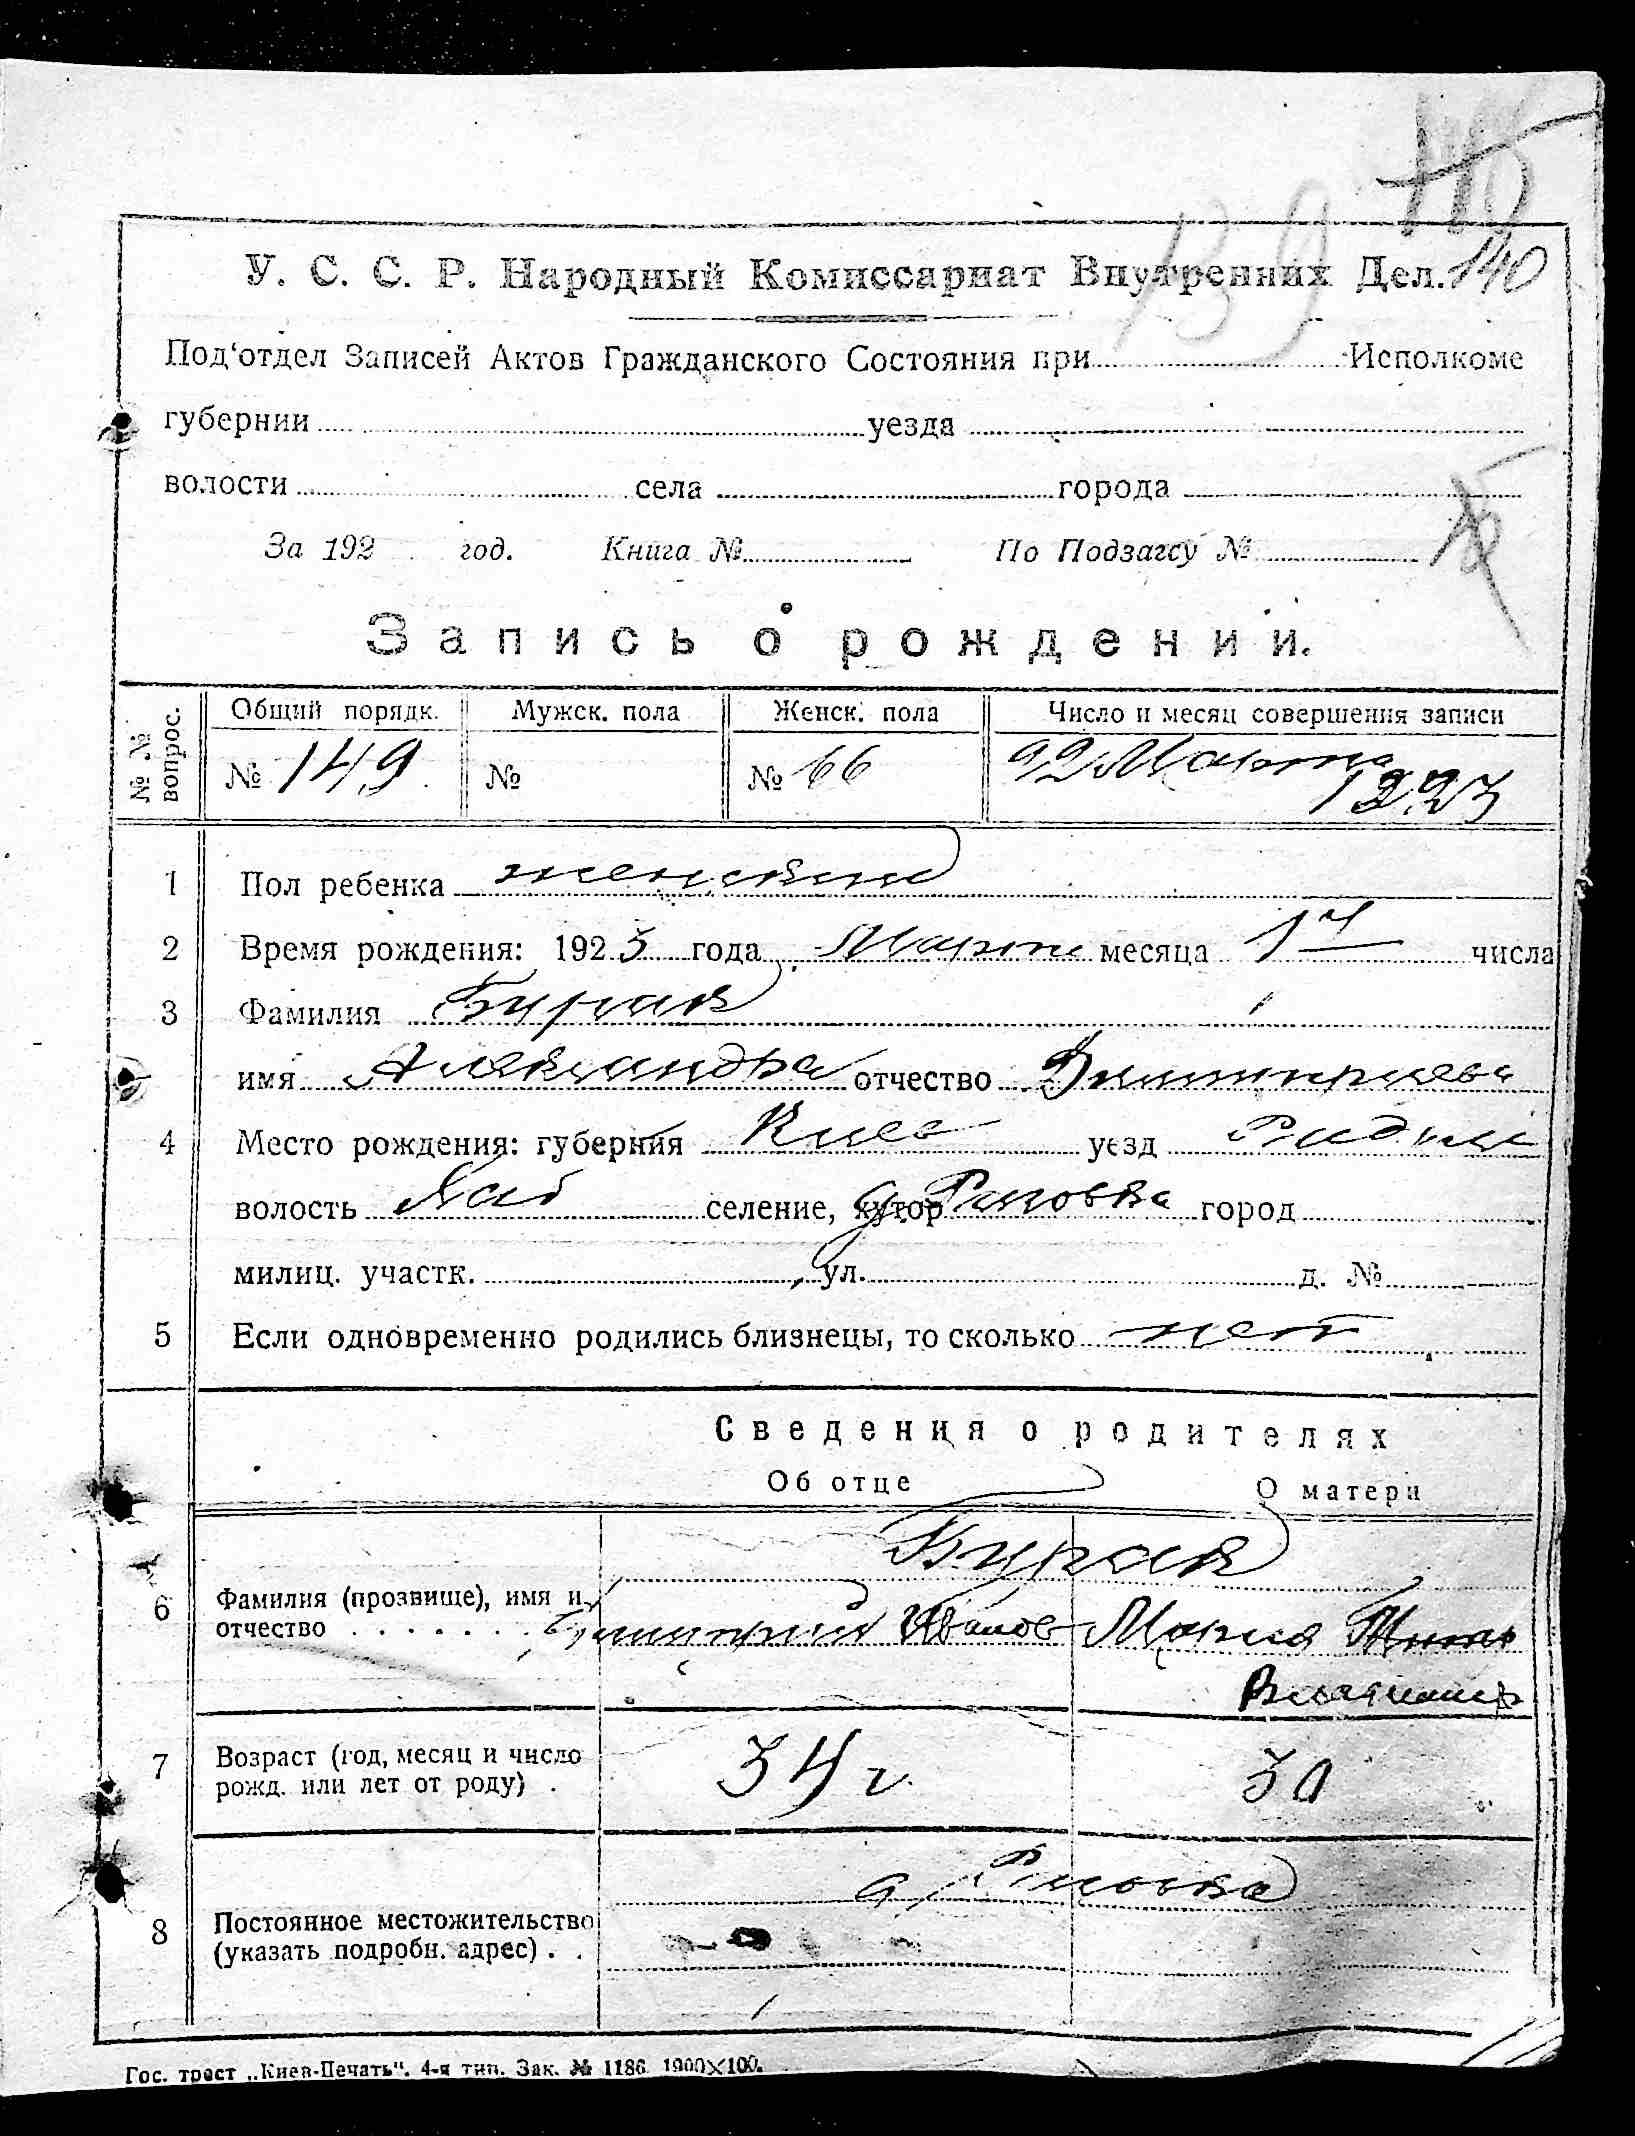 139
140
У. С. С. Р. Народный Комиссариат Внутренних Дел.
Под‘отдел Записей Актов Гражданского Состояния при Исполкоме
губернии уезда
волости села города
За 192 год. Книга № По Подзагсу №
Запись о рождении.
№ № вопрос. Общий порядк. Мужск. пола Женск. пола Число и месяц совершения записи
№ 149 № № 66 22 Марта 1923
1 Пол ребенка женский
2 Время рождения: 1923 года Марта месяца 17 числа
3 Фамилия Бурак
имя Александра отчество Димитриева
4 Место рождения: губерния Киев уезд
волость селение, хутор город
милиц. участк. ул. д. №
5 Если одновременно родились близнецы, то сколько нет
Сведения о родителях
Об отце О матери
Бурак
6 Фамилия (прозвище), имя и отчество . . . . . . . Димитрий Иванов Мария
7 Возраст (год, месяц и число рожд. или лет от роду) . 34 г. 30
8 Постоянное местожительство (указать подробн. адрес) . .
Гос. трест „Киев-Печать“. 4-я тип. Зак. № 1186 1900×100.